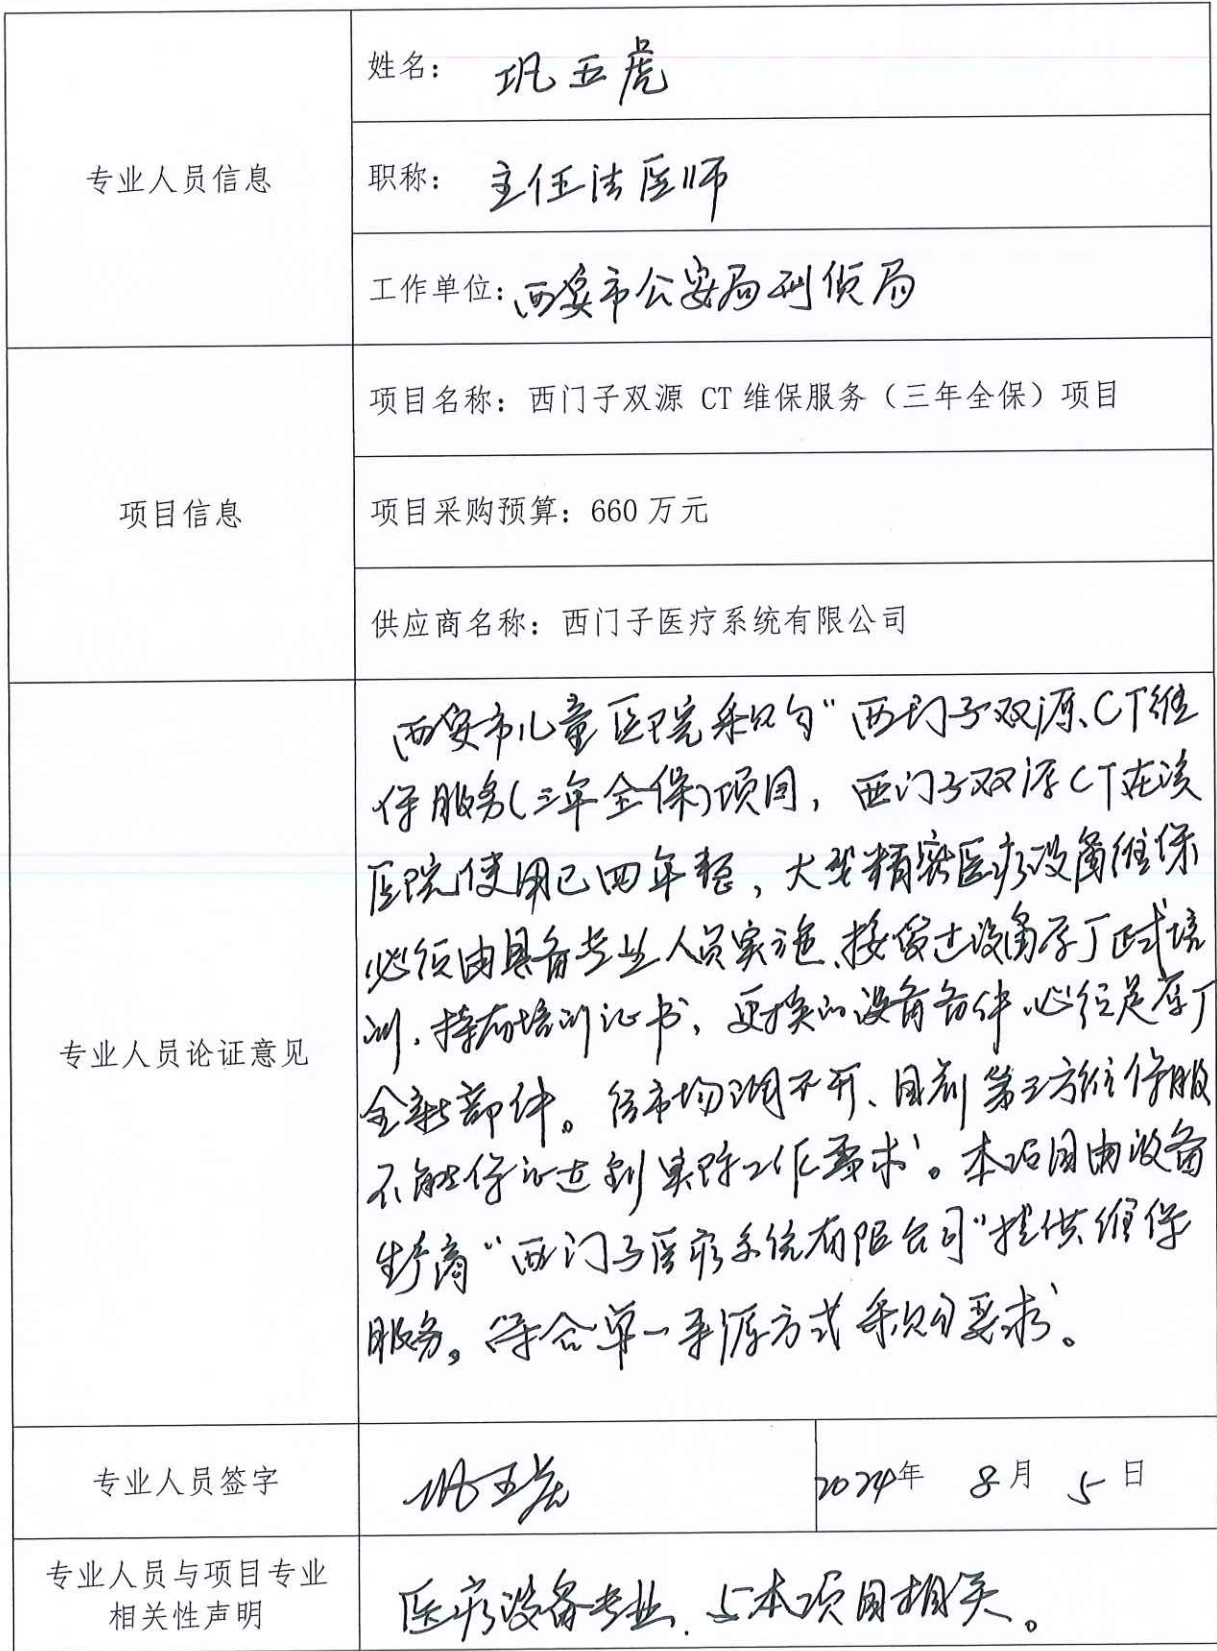 专业人员信息
姓名: 巩五虎
职称: 主任法医师
工作单位: 西安市公安局刑侦局
项目信息
项目名称: 西门子双源 CT 维保服务（三年全保）项目
项目采购预算: 660 万元
供应商名称: 西门子医疗系统有限公司
专业人员论证意见
西安市儿童医院采购"西门子双源、CT维
保服务(三年全保)项目, 西门子双源CT在该
医院使用已四年整, 大型精密医疗设备维保
必须由具备专业人员实施、接受过设备原厂正式培
训、持有培训证书、更换的设备备件必须是原厂
全新部件。经市场调不开、目前第三方维保服
不能保证达到实际工作要求。本项目由设备
生产商"西门子医疗系统有限公司"提供维保
服务。符合单一来源方式采购要求。
专业人员签字
巩五虎
2024年 8月 5日
专业人员与项目专业
相关性声明
医疗设备专业、与本项目相关。